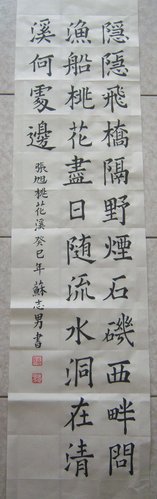 隱隱飛橋隔野煙石磯西畔問
漁船桃花盡日随流水洞在清
溪何處邊
張旭桃花溪癸巳年蘇志男書